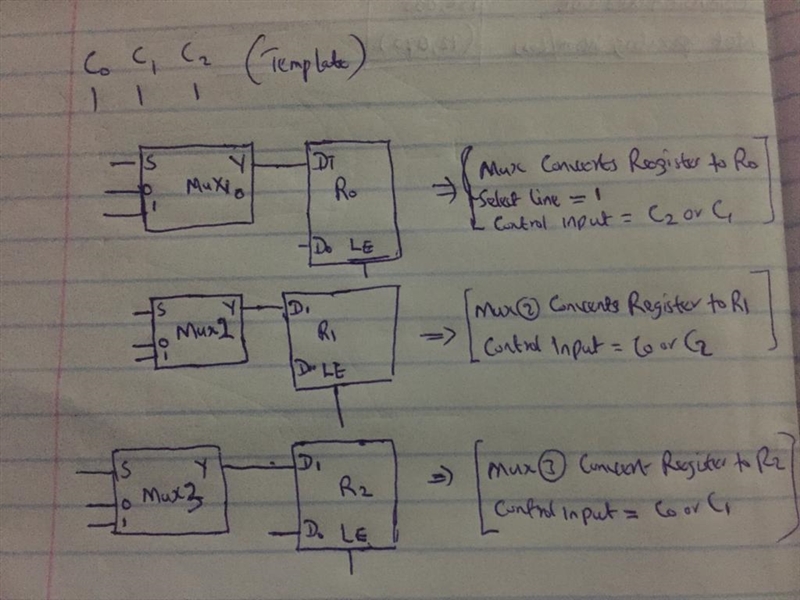 C0 C1 C2 (Template)
1 1 1
S Y
Mux
0
1
D1
R0
D0 LE
⇒ [Mux Converts Register to R0
Select Line = 1
Control input = C2 or C1]
S Y
Mux2
0
1
D1
R1
D0 LE
⇒ [Mux ② Converts Register to R1
Control Input = C0 or C2]
S Y
Mux3
0
1
D1
R2
D0 LE
⇒ [Mux ③ Convert Register to R2
Control input = C0 or C1]